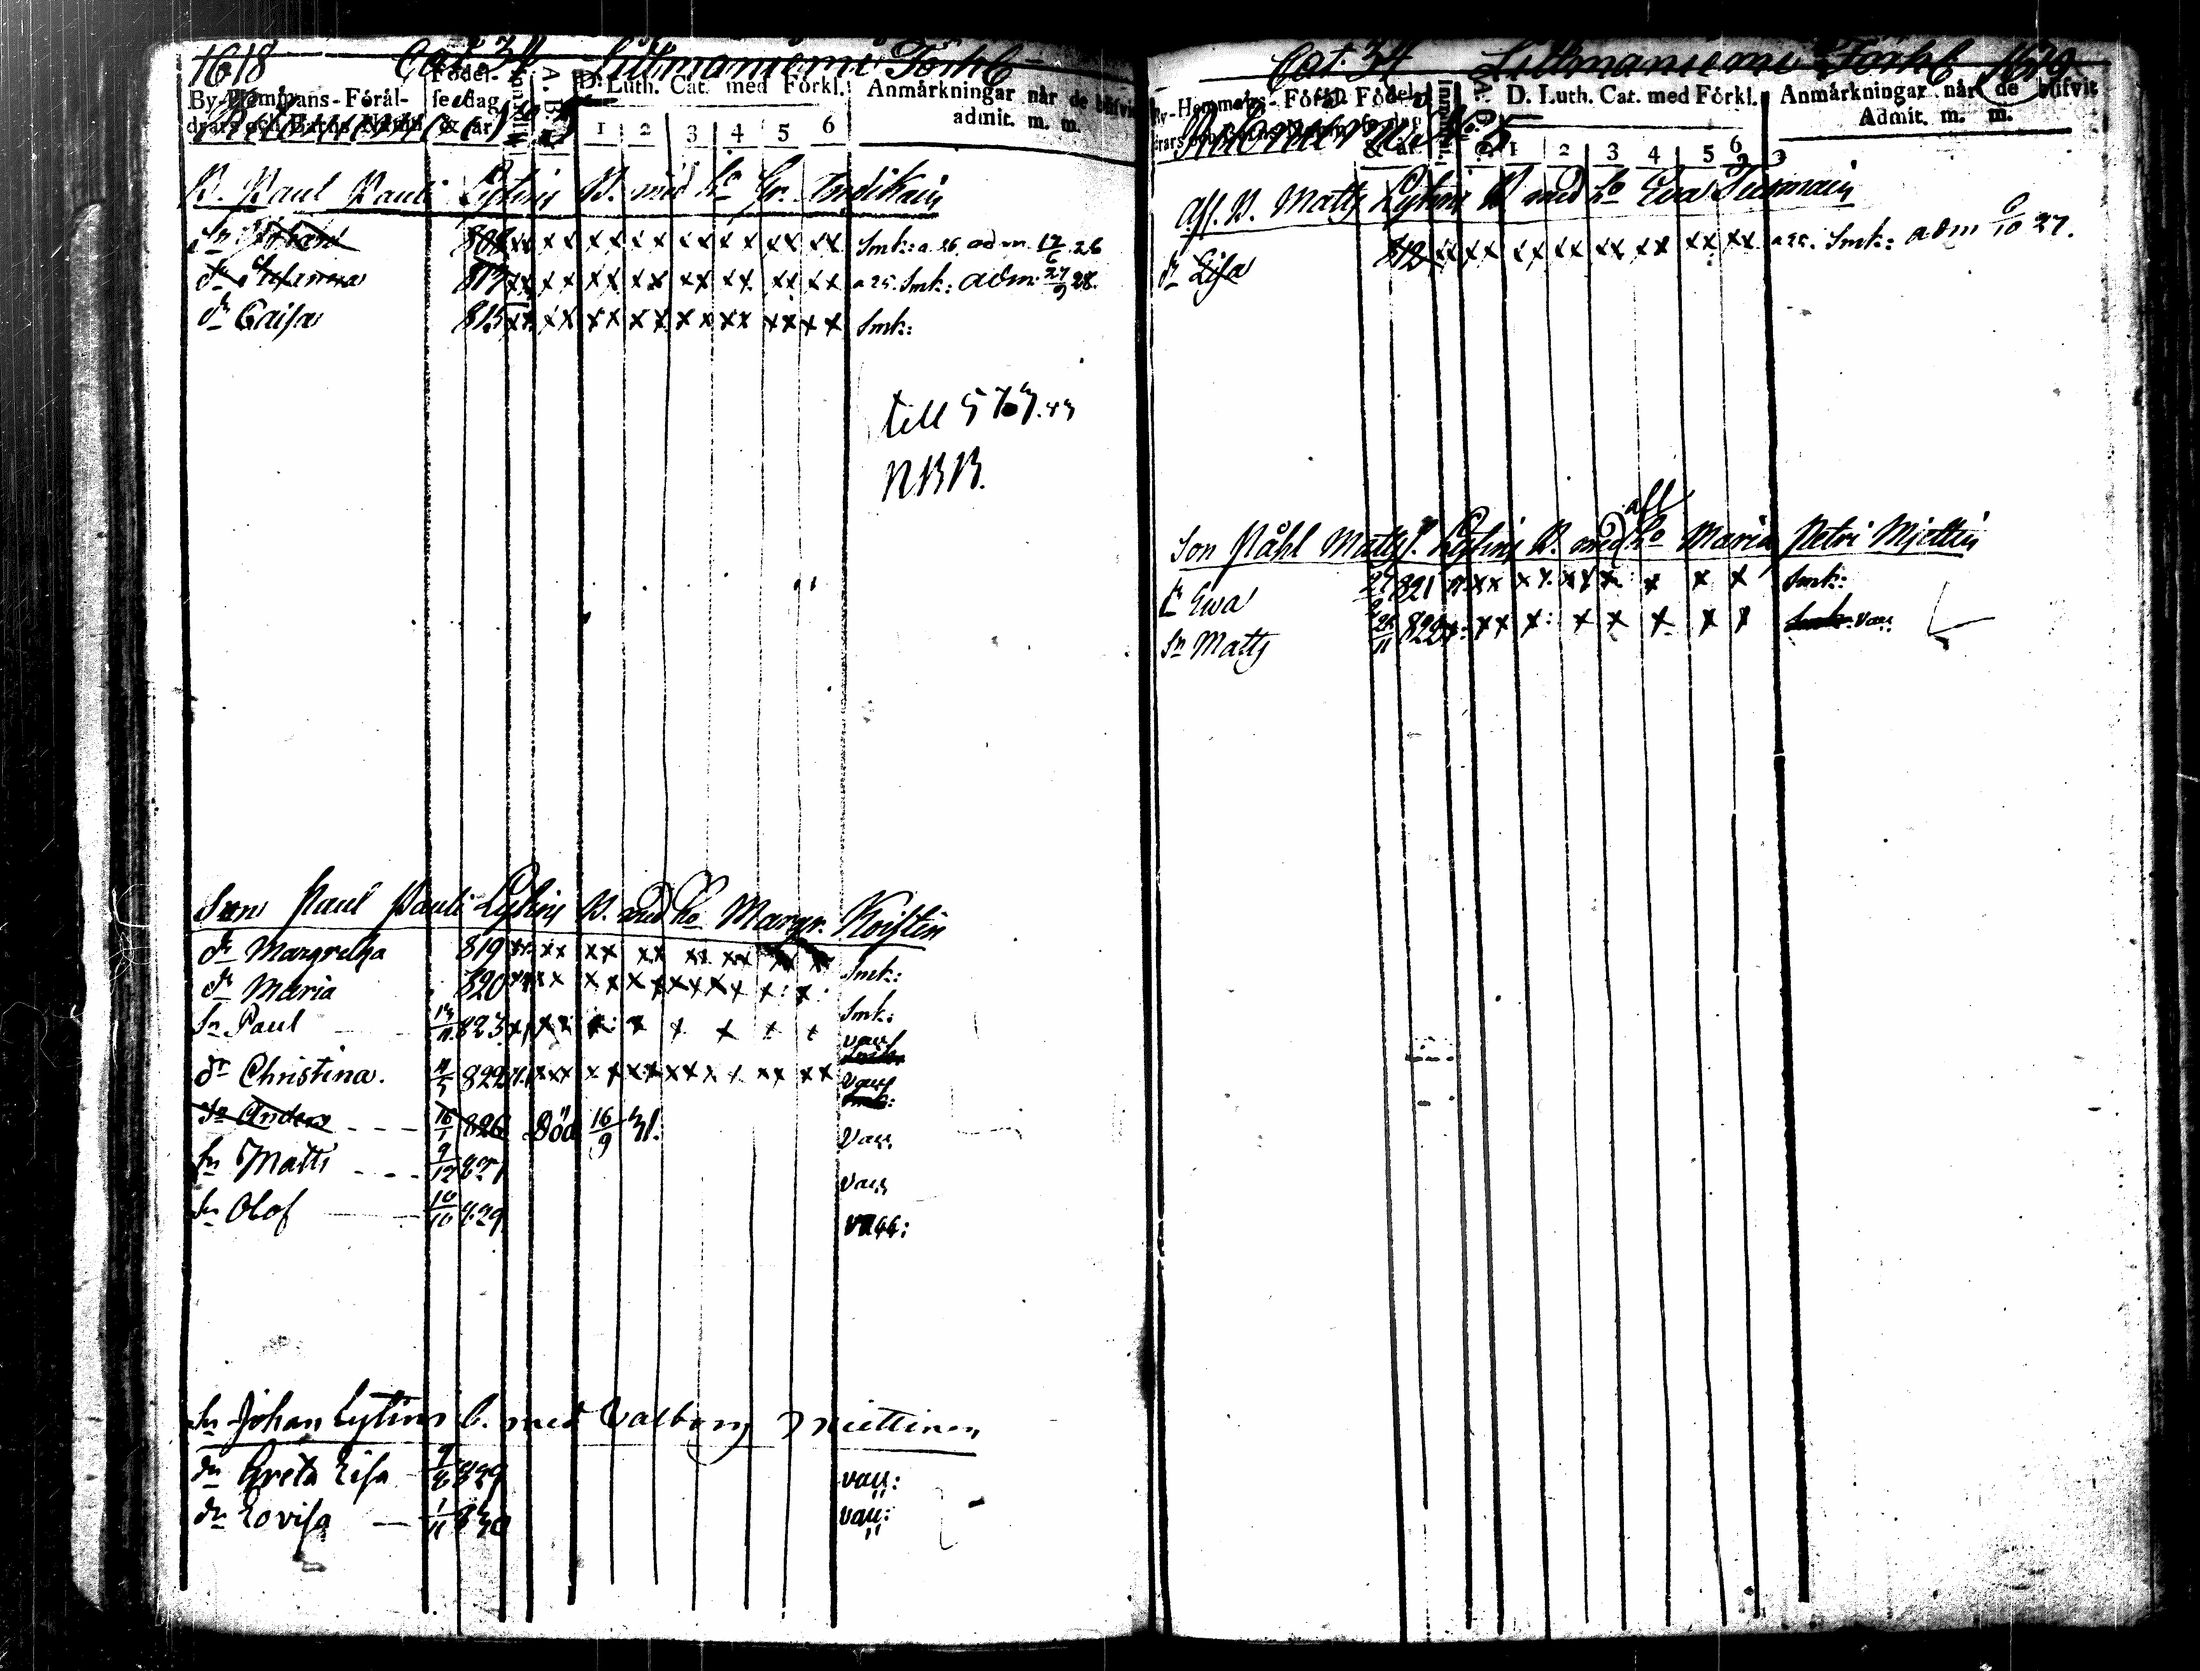 1618 Cat. 34 Littmaniemi Förhb
By-Hemmans-Föräl-
drars och Barns Namn
Födel-
sedag
& år
A. B.
D. Luth. Cat. med Förkl.
1 2 3 4 5 6
Anmärkningar när de blifvit
admit. m. m.
B. Paul Pauli Lytin B. med h:o
Sn Johan 808 xx xx xx xx xx xx xx xx Smk: a 26. adm. 26
dr Susanna 813 xx xx xx xx xx xx xx xx a 25. Smk: adm. 27/9 28.
dr Caisa 815 xx xx xx xx xx xx xx xx Smk:
till 573.
NBB.
Son Paul Pauli Lytin B. med h:o Margr. Koistin
dr Margretha 819 xx xx xx xx xx xx Smk:
dr Maria 820 xx xx xx xx xx xx x: x: Smk:
Sn Paul 823 x xx: x: x x x x x vacc
dr Christina. 822 x. xxx xx xx xx xx xx xx vacc
Sn Anders 16/1 826 Död 16/9 31. Vacc
Sn Matts 9/12 827 vacc
Sn Olof 10/10 829 vacc:
Sn Johan Lytin B. med Valborg Miettinen
dr Greta Lisa 829 vacc:
dr Lovisa 1/11 830 vacc:
Cat. 34 Littmaniemi Förhb 1619
By-Hemmans-Föräl-
D. Luth. Cat. med Förkl.
1 2 3 4 5 6
Anmärkningar när de blifvit
Admit. m. m.
Aff. B. Matts Lytin B med h:o Eva
dr Lisa 812 xx xx xx xx xx xx xx xx a 25. Smk: adm 6/10 27.
aff
Son Påhl Matts Lytin B. med h:o Maria Petri Miettin
dr Ewa 821 x. xx x x. xx x: x x x Smk:
Sn Matts 25/11 823 x: xx x: x x x x x vacc